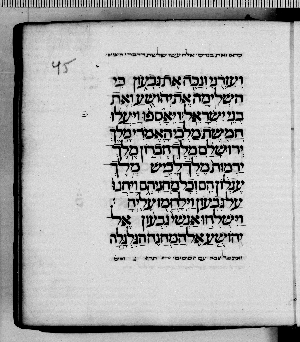 45
ועזרני ונכה את גבעון כי
השלימה את יהושע ואת
בני ישראל ויאספו ויעלו
חמשת מלכי האמרי מלך
ירושלם מלך חברון מלך
ירמות מלך לכיש מלך
עגלון הם וכל מחניהם ויחנו
על גבעון וילחמו עליה
וישלחו אנשי גבעון אל
יהושע אל המחנה הגלגלה